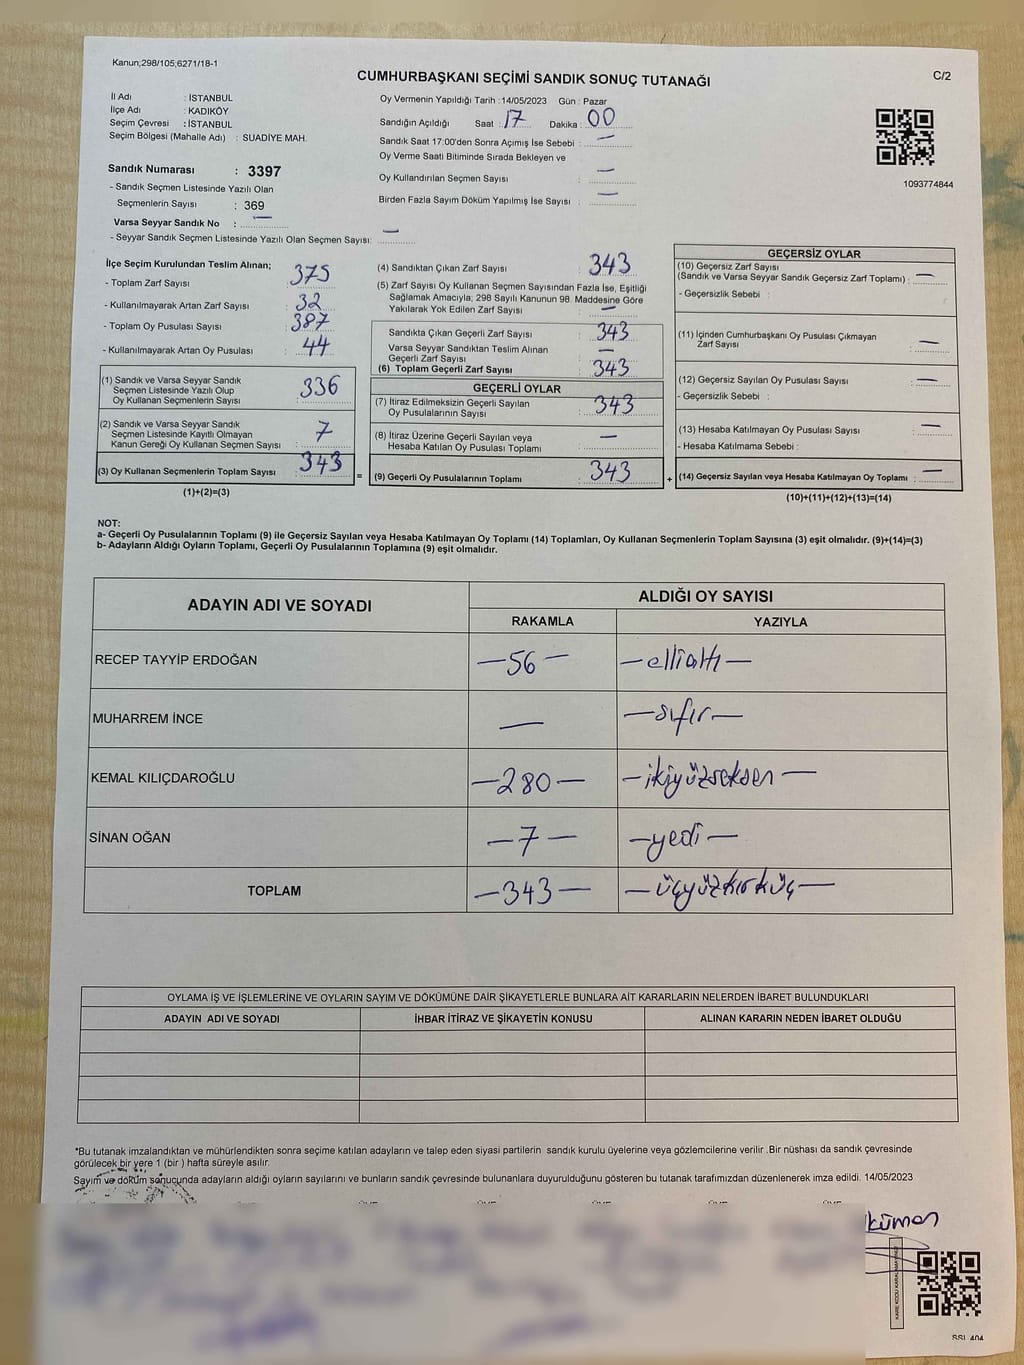 Kanun;298/105;6271/18-1
CUMHURBAŞKANI SEÇİMİ SANDIK SONUÇ TUTANAĞI
C/2
İl Adı : İSTANBUL
İlçe Adı : KADIKÖY
Seçim Çevresi : İSTANBUL
Seçim Bölgesi (Mahalle Adı) : SUADİYE MAH.
Sandık Numarası : 3397
- Sandık Seçmen Listesinde Yazılı Olan
Seçmenlerin Sayısı : 369
Varsa Seyyar Sandık No : —
- Seyyar Sandık Seçmen Listesinde Yazılı Olan Seçmen Sayısı: —
Oy Vermenin Yapıldığı Tarih :14/05/2023 Gün : Pazar
Sandığın Açıldığı Saat : 17 Dakika : 00
Sandık Saat 17:00'den Sonra Açımış İse Sebebi : —
Oy Verme Saati Bitiminde Sırada Bekleyen ve
Oy Kullandırılan Seçmen Sayısı : —
Birden Fazla Sayım Döküm Yapılmış İse Sayısı : —
1093774844
İlçe Seçim Kurulundan Teslim Alınan;
- Toplam Zarf Sayısı : 375
- Kullanılmayarak Artan Zarf Sayısı : 32
- Toplam Oy Pusulası Sayısı : 387
- Kullanılmayarak Artan Oy Pusulası : 44
(1) Sandık ve Varsa Seyyar Sandık
Seçmen Listesinde Yazılı Olup
Oy Kullanan Seçmenlerin Sayısı : 336
(2) Sandık ve Varsa Seyyar Sandık
Seçmen Listesinde Kayıtlı Olmayan
Kanun Gereği Oy Kullanan Seçmen Sayısı : 7
(3) Oy Kullanan Seçmenlerin Toplam Sayısı : 343
(1)+(2)=(3)
=
(4) Sandıktan Çıkan Zarf Sayısı : 343
(5) Zarf Sayısı Oy Kullanan Seçmen Sayısından Fazla İse, Eşitliği
Sağlamak Amacıyla; 298 Sayılı Kanunun 98. Maddesine Göre
Yakılarak Yok Edilen Zarf Sayısı : —
Sandıkta Çıkan Geçerli Zarf Sayısı : 343
Varsa Seyyar Sandıktan Teslim Alınan
Geçerli Zarf Sayısı : —
(6) Toplam Geçerli Zarf Sayısı : 343
GEÇERLİ OYLAR
(7) İtiraz Edilmeksizin Geçerli Sayılan
Oy Pusulalarının Sayısı : 343
(8) İtiraz Üzerine Geçerli Sayılan veya
Hesaba Katılan Oy Pusulası Toplamı : —
(9) Geçerli Oy Pusulalarının Toplamı : 343
+
GEÇERSİZ OYLAR
(10) Geçersiz Zarf Sayısı
(Sandık ve Varsa Seyyar Sandık Geçersiz Zarf Toplamı) : —
- Geçersizlik Sebebi :
(11) İçinden Cumhurbaşkanı Oy Pusulası Çıkmayan
Zarf Sayısı : —
(12) Geçersiz Sayılan Oy Pusulası Sayısı : —
- Geçersizlik Sebebi :
(13) Hesaba Katılmayan Oy Pusulası Sayısı : —
- Hesaba Katılmama Sebebi :
(14) Geçersiz Sayılan veya Hesaba Katılmayan Oy Toplamı : —
(10)+(11)+(12)+(13)=(14)
NOT:
a- Geçerli Oy Pusulalarının Toplamı (9) ile Geçersiz Sayılan veya Hesaba Katılmayan Oy Toplamı (14) Toplamları, Oy Kullanan Seçmenlerin Toplam Sayısına (3) eşit olmalıdır. (9)+(14)=(3)
b- Adayların Aldığı Oyların Toplamı, Geçerli Oy Pusulalarının Toplamına (9) eşit olmalıdır.
ADAYIN ADI VE SOYADI ALDIĞI OY SAYISI
RAKAMLA YAZIYLA
RECEP TAYYİP ERDOĞAN —56— —ellialtı—
MUHARREM İNCE — —sıfır—
KEMAL KILIÇDAROĞLU —280— —ikiyüzseksen—
SİNAN OĞAN —7— —yedi—
TOPLAM —343— —üçyüzkırküç—
OYLAMA İŞ VE İŞLEMLERİNE VE OYLARIN SAYIM VE DÖKÜMÜNE DAİR ŞİKAYETLERLE BUNLARA AİT KARARLARIN NELERDEN İBARET BULUNDUKLARI
ADAYIN ADI VE SOYADI İHBAR İTİRAZ VE ŞİKAYETİN KONUSU ALINAN KARARIN NEDEN İBARET OLDUĞU
*Bu tutanak imzalandıktan ve mühürlendikten sonra seçime katılan adayların ve talep eden siyasi partilerin sandık kurulu üyelerine veya gözlemcilerine verilir .Bir nüshası da sandık çevresinde
görülecek bir yere 1 (bir ) hafta süreyle asılır.
Sayım ve döküm sonucunda adayların aldığı oyların sayılarını ve bunların sandık çevresinde bulunanlara duyurulduğunu gösteren bu tutanak tarafımızdan düzenlenerek imza edildi. 14/05/2023